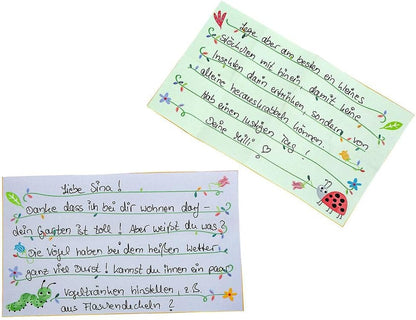 Liebe Sina!
Danke dass ich bei dir wohnen darf –
dein Garten ist toll! Aber weißt du was?
Die Vögel haben bei dem heißen Wetter
ganz viel Durst! kannst du ihnen ein paar
Vogeltränken hinstellen, z.B.
aus Flaschendeckeln?
Lege aber am besten ein kleines
Stöckchen mit hinein, damit keine
Insekten darin ertrinken, sondern von
alleine herauskrabbeln können.
Hab einen lustigen Tag!
Deine Lilli ♡